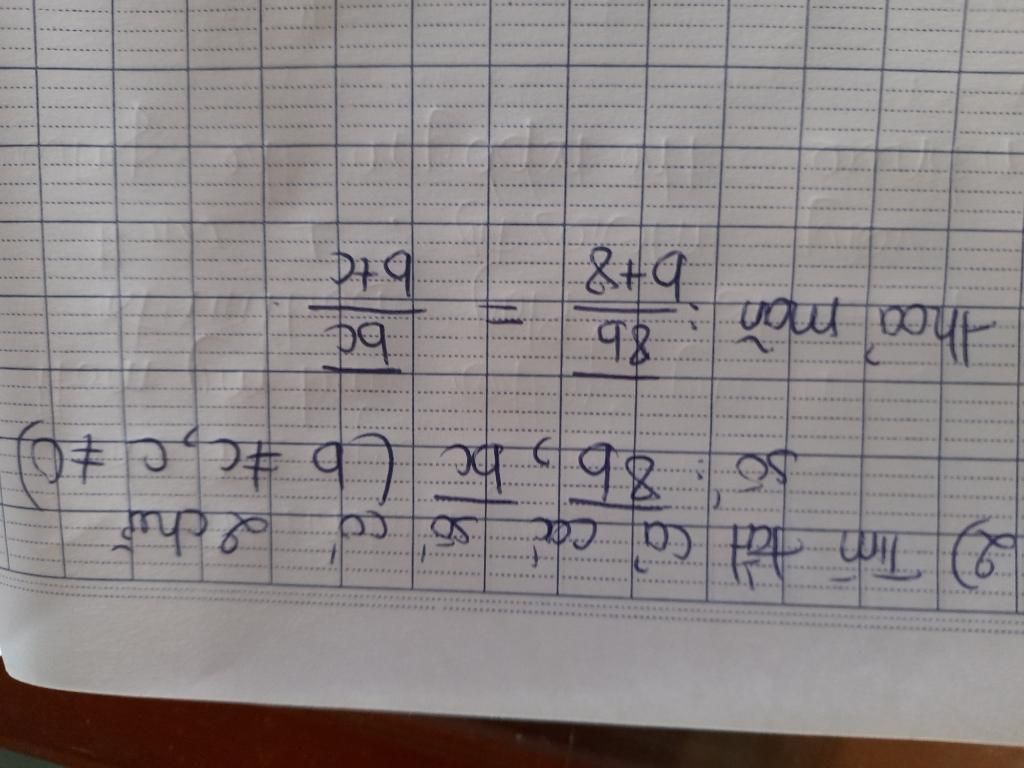 2) Tìm tất cả các số có 2 chữ
số: 8b, bc ( b ≠ c, c ≠ 0)
thoả mãn : 8b/b+8 = bc/b+c